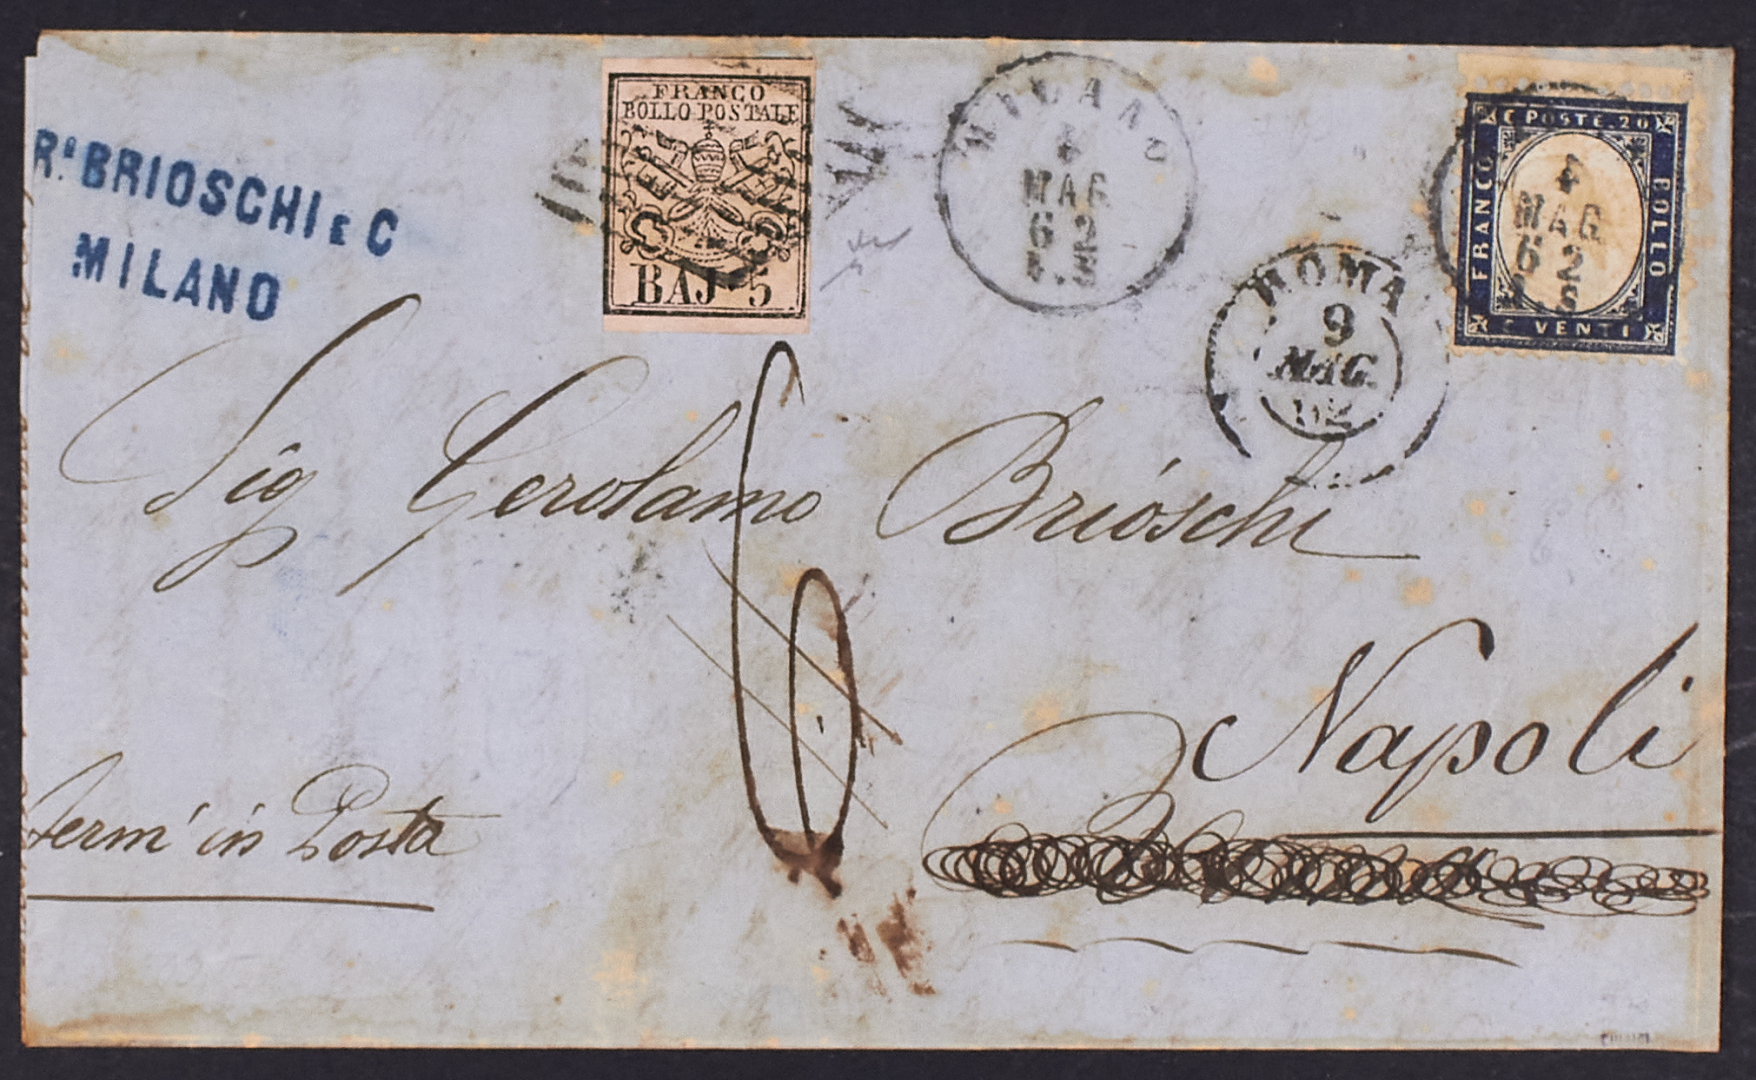 R.ª BRIOSCHI E C
MILANO
FRANCO
BOLLO POSTALE
BAJ 5
MILANO
4
MAG
62
ROMA
9
MAG
62
C POSTE 20
FRANCO
BOLLO
C VENTI
4
MAG
62
Sig Gerolamo Brioschi
Napoli
ferm' in Posta